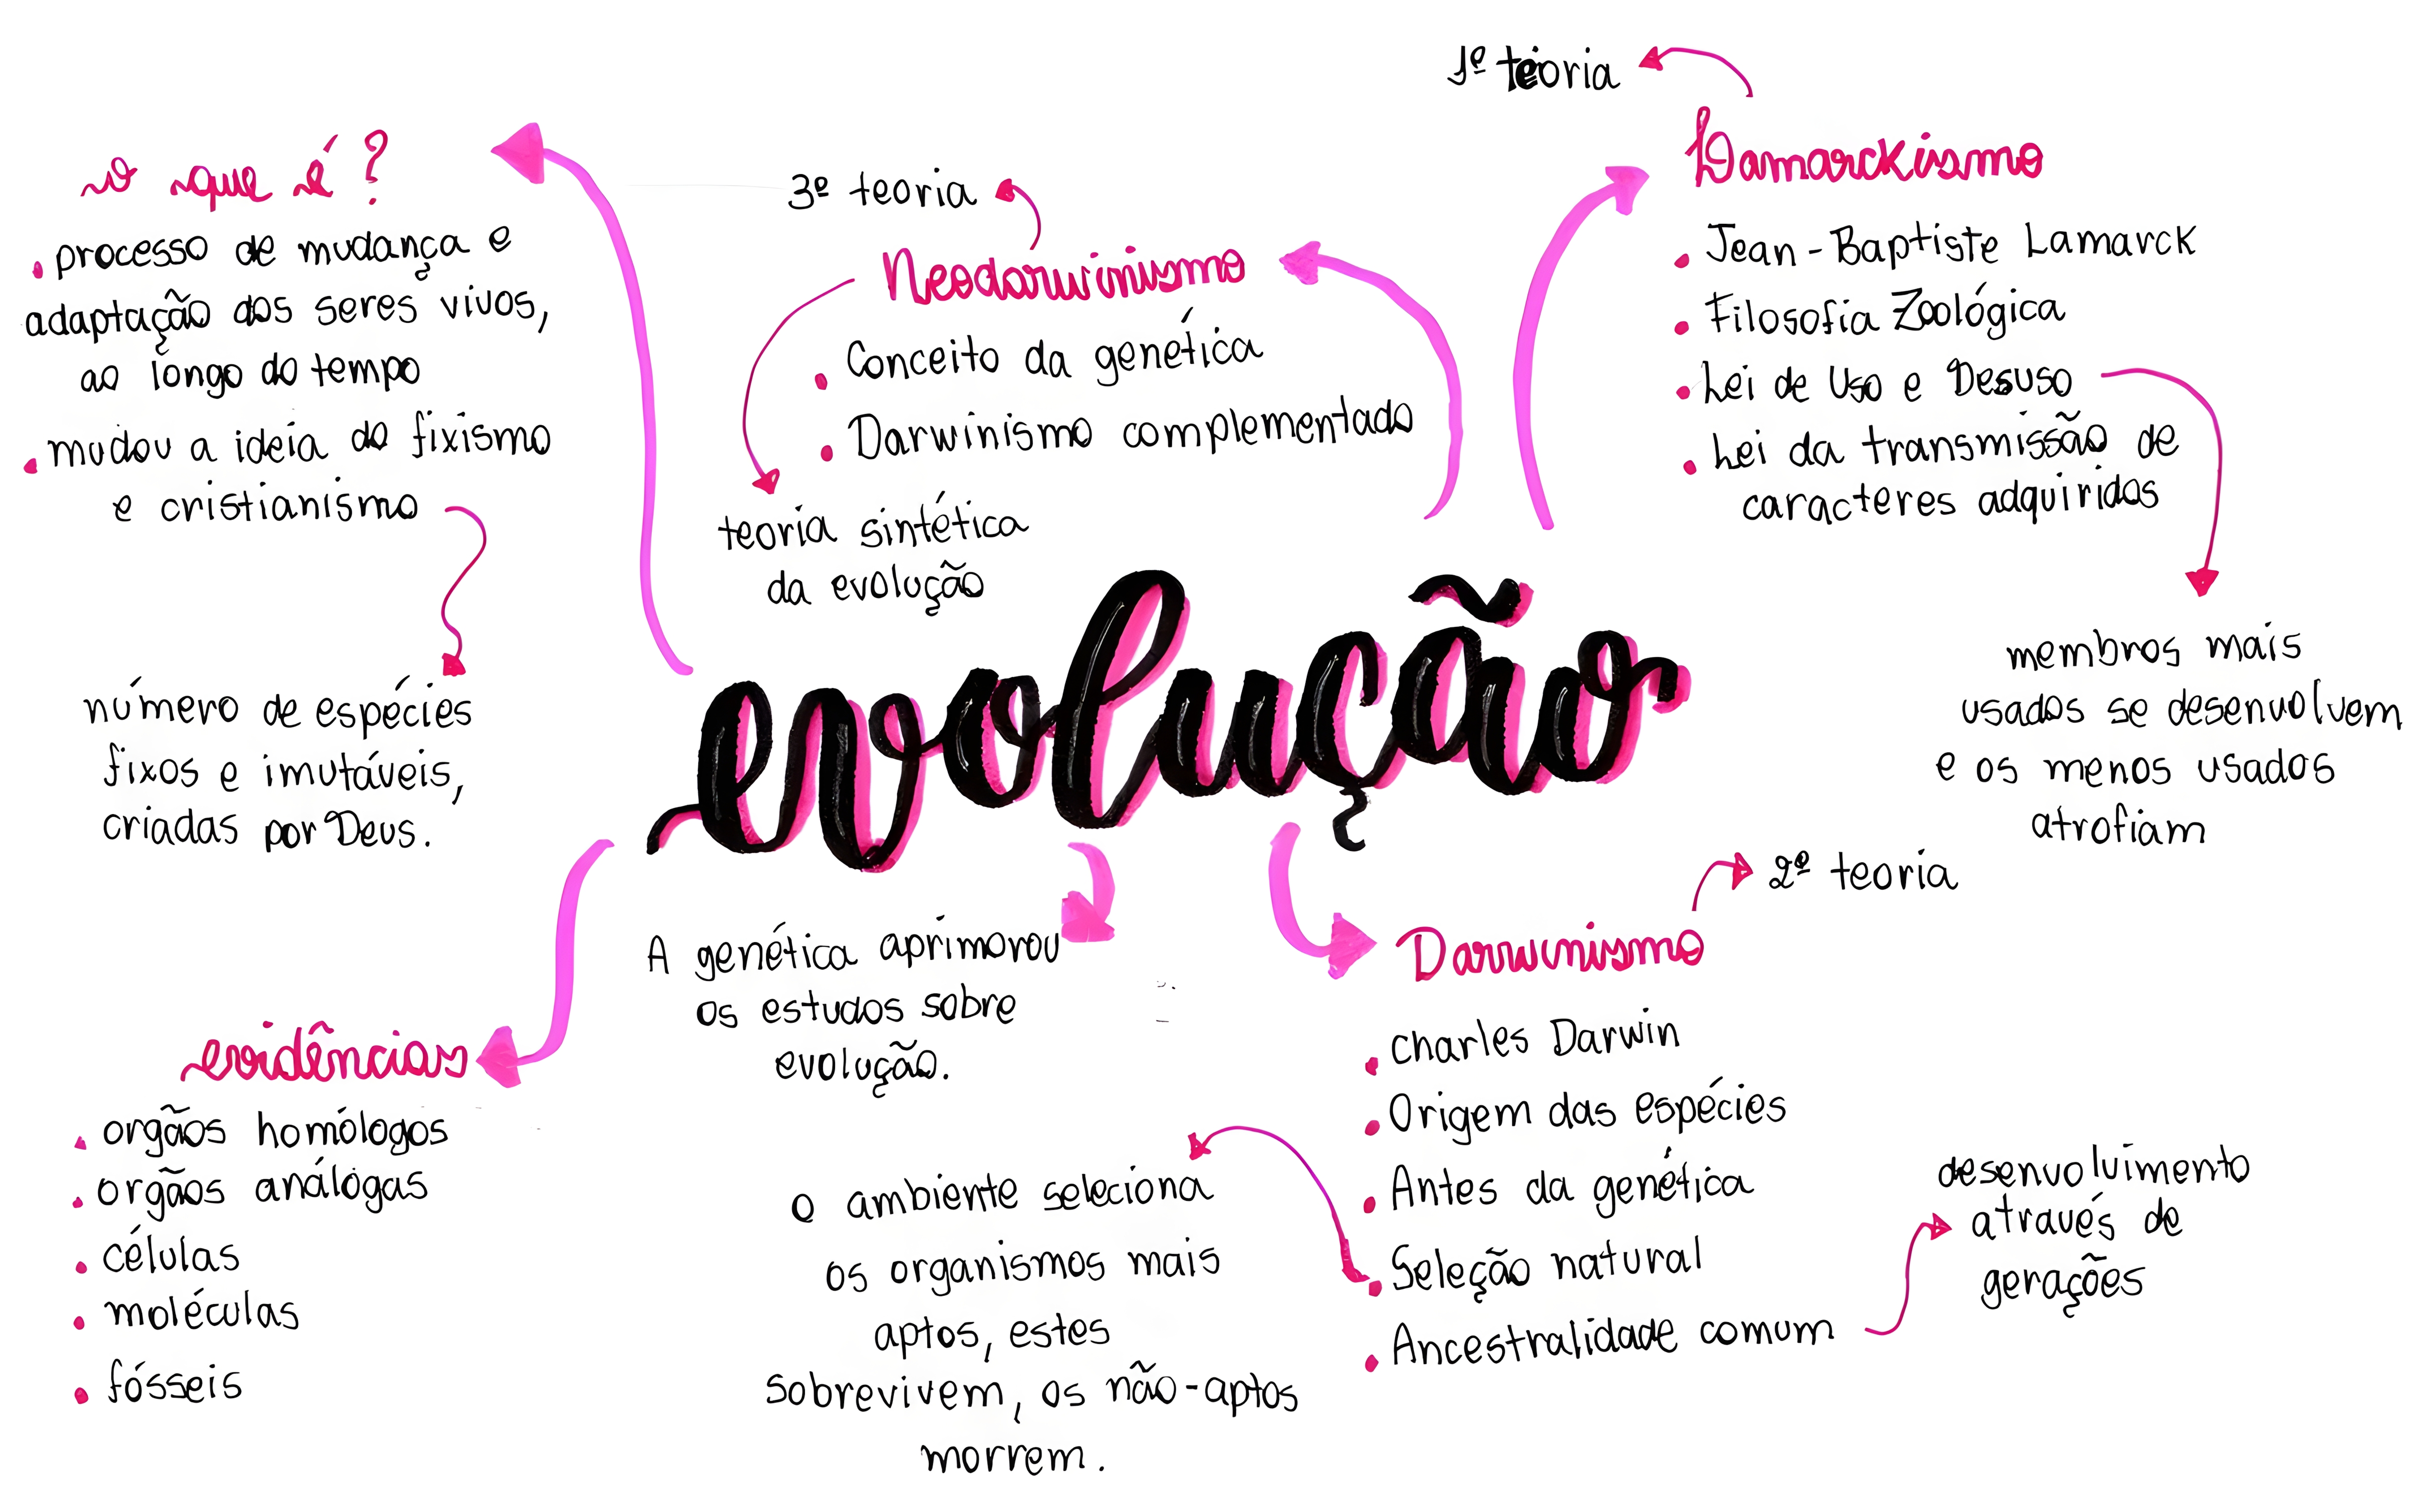 O que é?
• processo de mudança e
adaptação dos seres vivos,
ao longo do tempo
• mudou a ideia do fixismo
e cristianismo
número de espécies
fixos e imutáveis,
criadas por Deus.
3º teoria
Neodarwinismo
• Conceito da genética
• Darwinismo complementado
teoria sintética
da evolução
1º teoria
Lamarckismo
• Jean-Baptiste Lamarck
• Filosofia Zoológica
• Lei de Uso e Desuso
• Lei da transmissão de
caracteres adquiridos
membros mais
usados se desenvolvem
e os menos usados
atrofiam
evolução
evidências
• orgãos homólogos
• orgãos análógas
• células
• moléculas
• fósseis
A genética aprimorou
os estudos sobre
evolução.
2º teoria
Darwinismo
• Charles Darwin
• Origem das espécies
• Antes da genética
• Seleção natural
• Ancestralidade comum
o ambiente seleciona
os organismos mais
aptos, estes
sobrevivem, os não-aptos
morrem.
desenvolvimento
através de
gerações